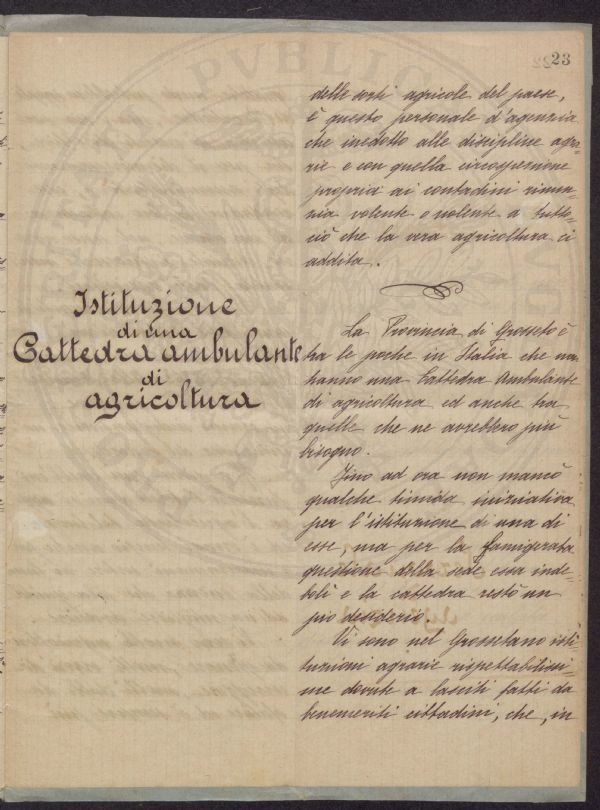 23
delle sorti agricole del paese,
è questo personale d'agenzia
che inedotto alle discipline agra-
rie e con quella circospezione
propria ai contadini rinun-
zia volente o nolente a tutto-
ciò che la vera agricoltura ci
addita.
Istituzione
di una
Cattedra ambulante
di
agricoltura
La Provincia di Grosseto è
tra le poche in Italia che non
hanno una Cattedra Ambulante
di agricoltura ed anche tra
quelle che ne avrebbero più
bisogno.
Fino ad ora non mancò
qualche timida iniziativa
per l'istituzione di una di
esse, ma per la famigerata
questione della sede essa inde-
bolì e la cattedra restò un
pio desiderio.
Vi sono nel Grossetano isti-
tuzioni agrarie rispettabilissi-
me dovute a lasciti fatti da
benemeriti cittadini, che, in